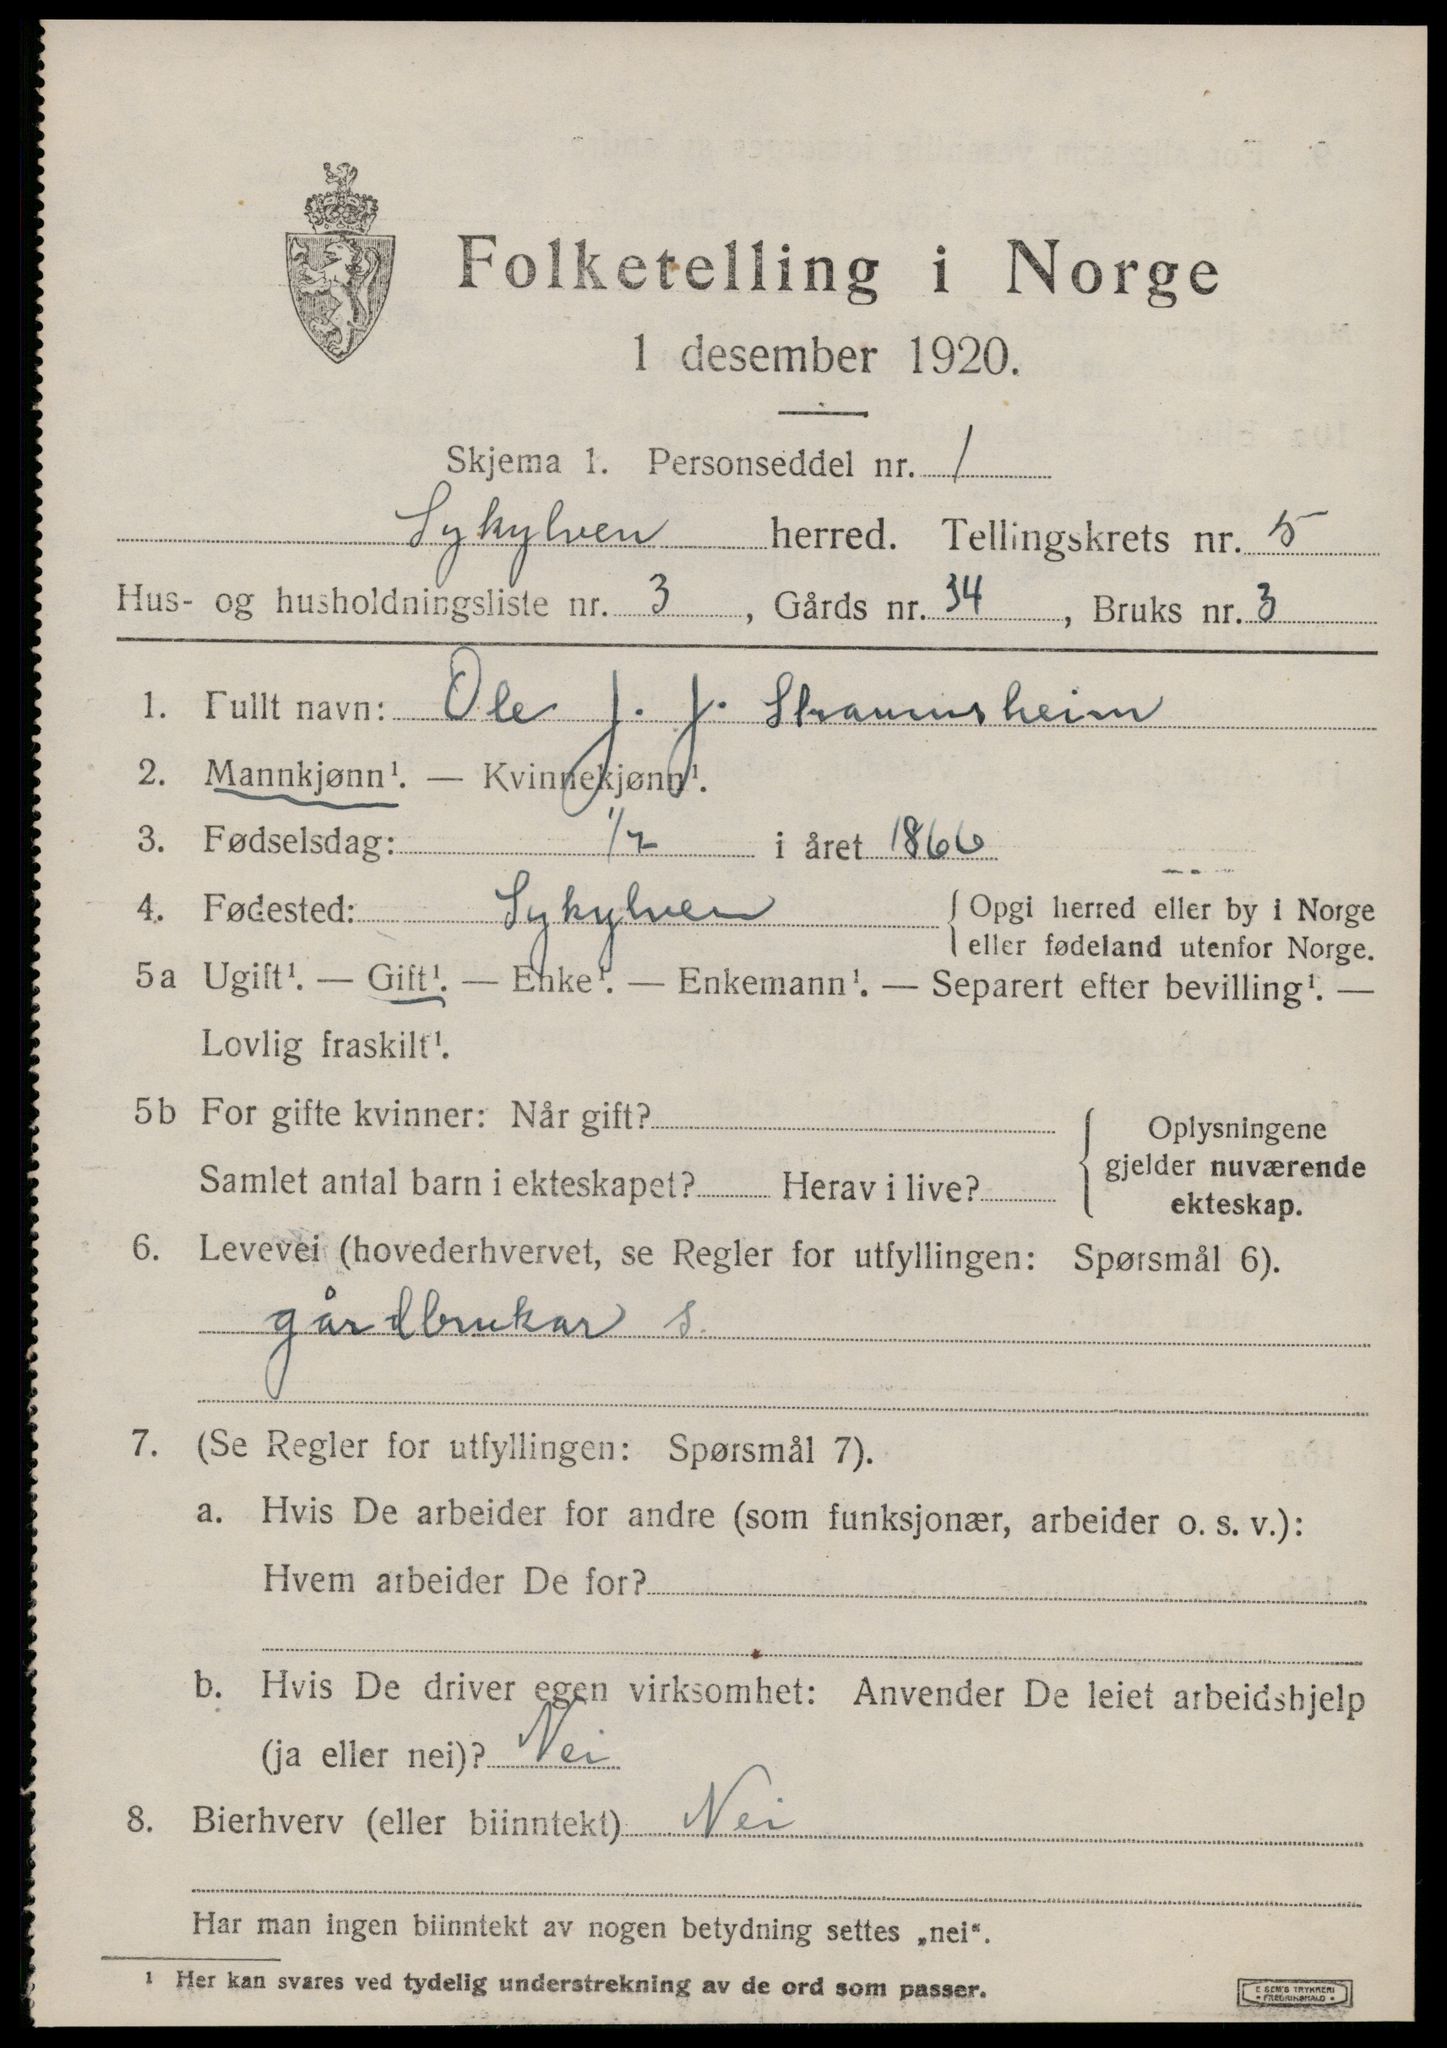 Folketelling i Norge
1 desember 1920.
Skjema 1. Personseddel nr. 1
Sykylven herred. Tellingskrets nr. 5
Hus- og husholdningsliste nr. 3, Gårds nr. 34, Bruks nr. 3
1. Fullt navn: Ole J. J. Straumsheim
2. Mannkjønn¹. — Kvinnekjønn¹.
3. Fødselsdag: 1/2 i året 1866
4. Fødested: Sykylven { Opgi herred eller by i Norge
eller fødeland utenfor Norge.
5a Ugift¹. — Gift¹. — Enke¹. — Enkemann¹. — Separert efter bevilling¹. —
Lovlig fraskilt¹.
5b For gifte kvinner: Når gift?
Samlet antal barn i ekteskapet? Herav i live?
{ Oplysningene
gjelder nuværende
ekteskap.
6. Levevei (hovederhvervet, se Regler for utfyllingen: Spørsmål 6).
gårdbrukar s.
7. (Se Regler for utfyllingen: Spørsmål 7).
a. Hvis De arbeider for andre (som funksjonær, arbeider o. s. v.):
Hvem arbeider De for?
b. Hvis De driver egen virksomhet: Anvender De leiet arbeidshjelp
(ja eller nei)? Nei
8. Bierhverv (eller biinntekt) Nei
Har man ingen biinntekt av nogen betydning settes „nei“.
¹ Her kan svares ved tydelig understrekning av de ord som passer.
E SEM'S TRYKKERI
FREDRIKSHALD